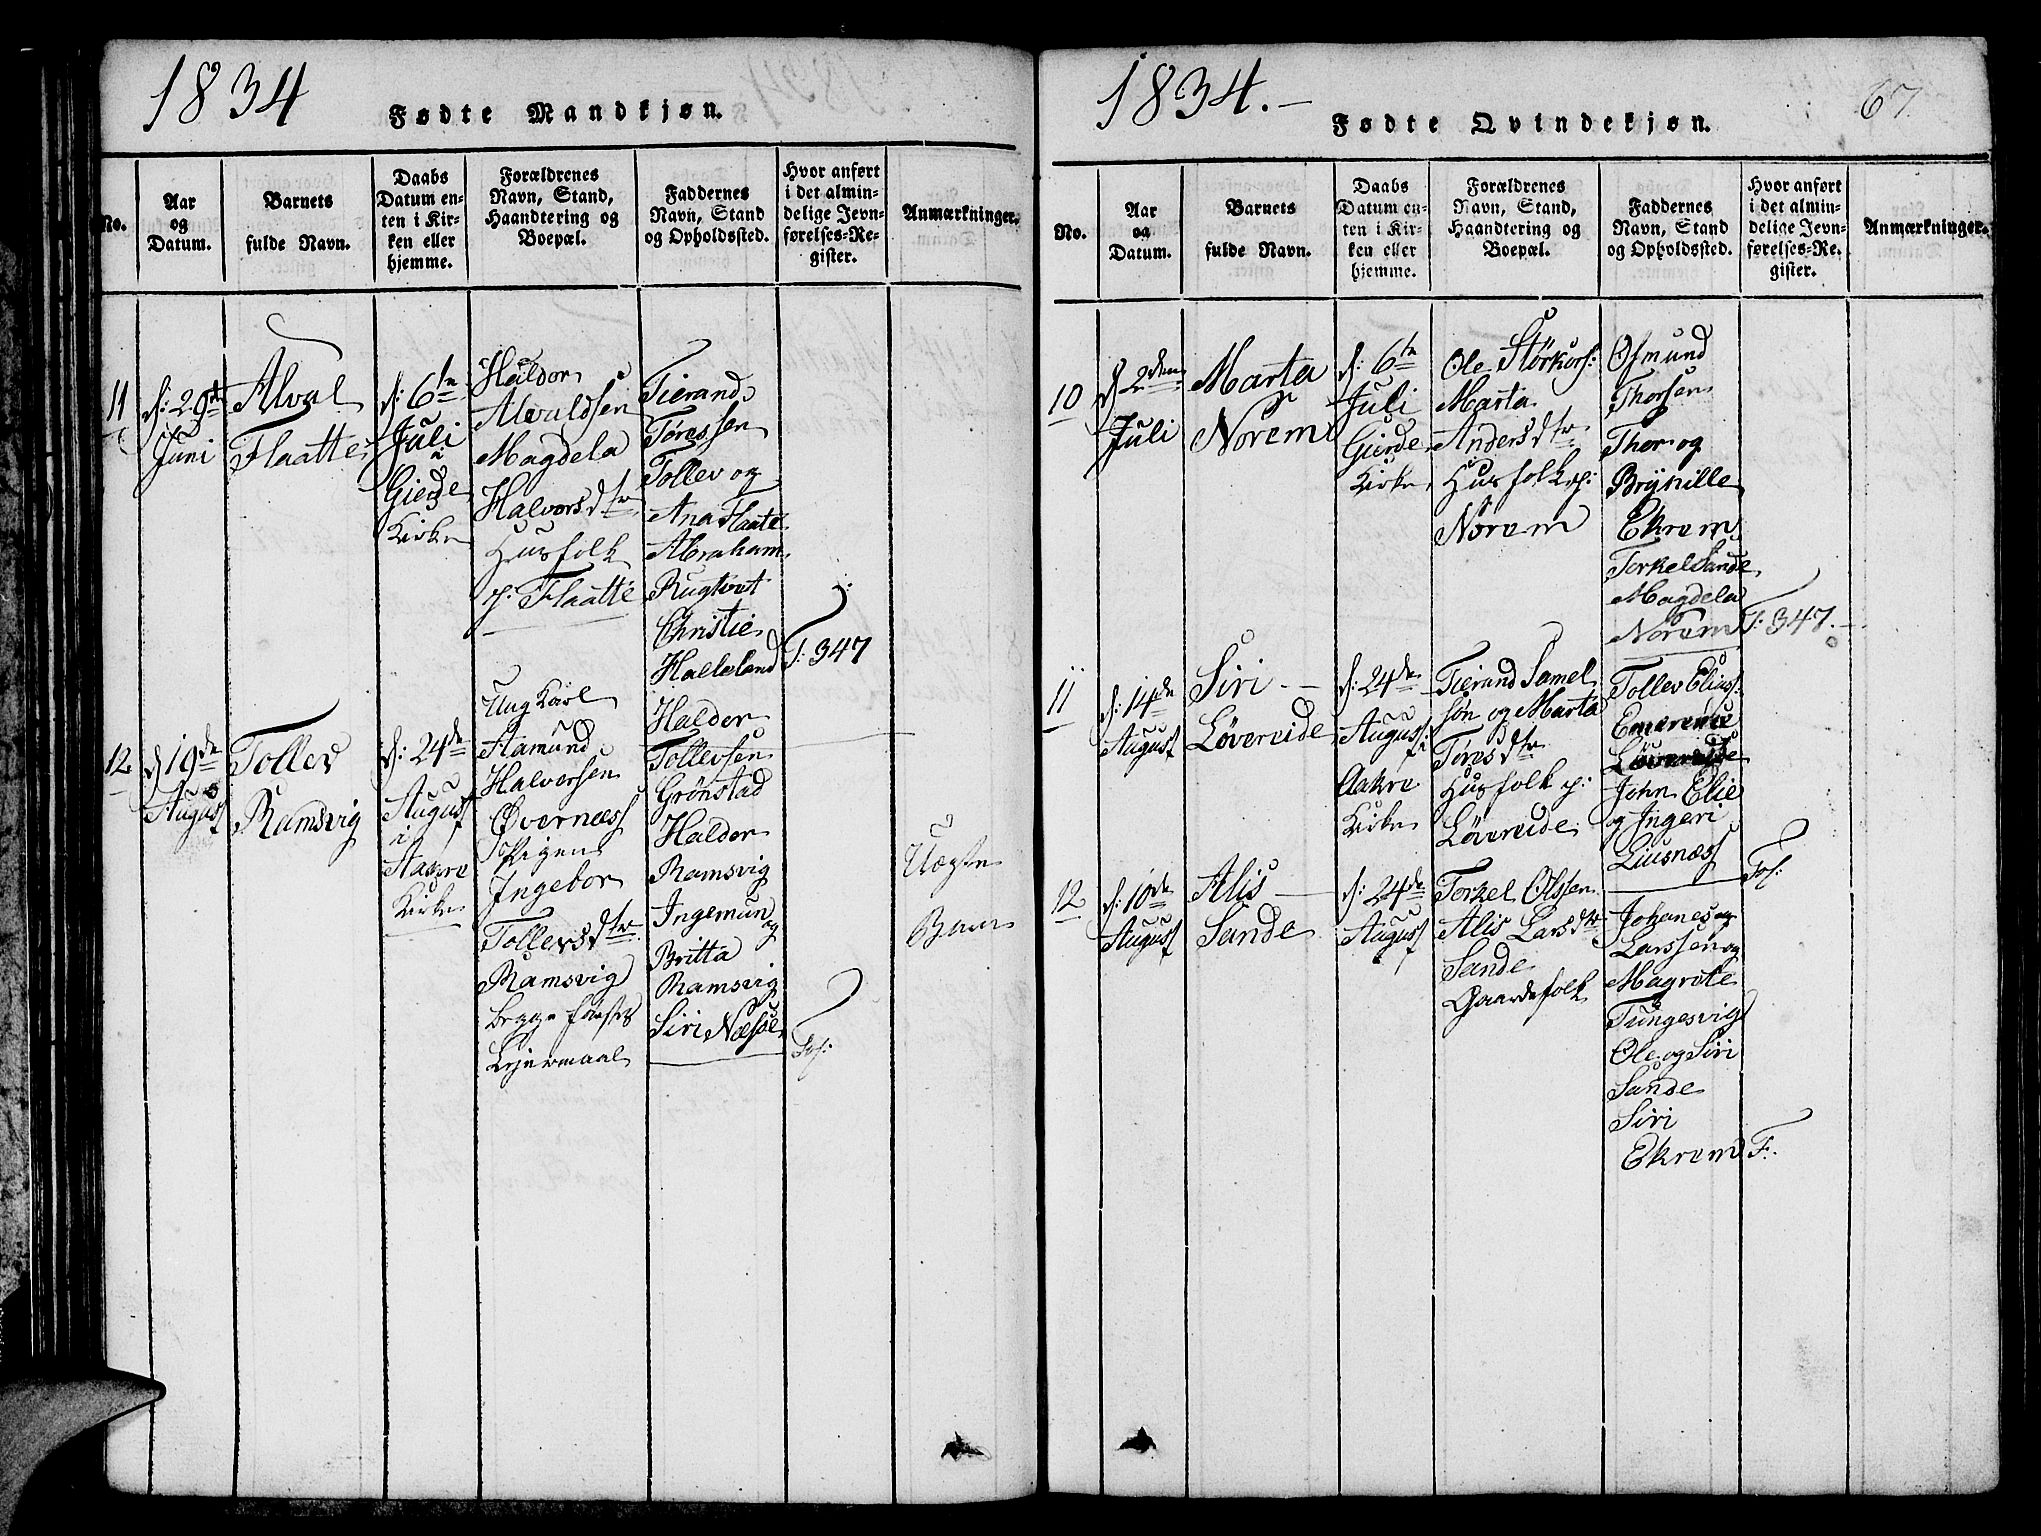 1834
Fødte Mandkjøn.
No.
Aar
og
Datum.
Barnets
fulde Navn.
Daabs
Datum en-
ten i Kir-
ken eller
hjemme.
Forældrenes
Navn, Stand,
Haandtering og
Boepæl.
Faddernes
Navn, Stand
og Opholdssted.
Hvor anført
i det almin-
delige Jevn-
førelses-Re-
gister.
Anmærkninger.
11
d: 29de
Juni
Alval
Flaatte
d: 6te
Juli
i
Gierde
Kirke
Haldor
Alvaldsen
Magdela
Halvorsdtr
Husfolk
p: Flaatte
Tierand
Tøressen
Tollev og
Ana Flaate
Abraham
Rugtvet
Christie
Halleland
T: 347
12
d 19de
August
Tollev
Ramsvig
d: 24de
August
i
Aakre
Kirke
Ung Karl
Aamund
Halvorsen
Øvernæss
Pigen
Ingebor
Tollevsdtr
Ramsvig
begge første
Lejermaal
Halder
Tollevsen
Grønstad
Halder
Ramsvig
Ingemun
og
Britta
Ramsvig
Siri Næsse
Fof:
Uægte
Barn
1834.-
67.
Fødte Qvindekjøn.
No.
Aar
og
Datum.
Barnets
fulde Navn.
Daabs
Datum en-
ten i Kir-
ken eller
hjemme.
Forældrenes
Navn, Stand,
Haandtering og
Boepæl.
Faddernes
Navn, Stand
og Opholdssted.
Hvor anført
i det almin-
delige Jevn-
førelses-Re-
gister.
Anmærkninger.
10
d 2den
Juli
Marta
Norem
d: 6te
Juli
Gierde
Kirke
Ole Størkors:
Marta
Andersdtr
Husfolk p:
Norem
Osmund
Thorsen
Thor og
Brynille
Ekrem
Torkel Sande
Magdela
Norem
T: 347.-
11
d: 14de
August
Siri
Løvereide
d: 24de
August
i
Aakre
Kirke
Tierand Samel
søn og Marta
Tøresdtr
Husfolk p:
Løvereide
Tollev Elias:
Løvereide
John Elie
og Ingeri
Liusnæss
Fof:
12
d: 10de
August
Alis
Sande
d: 24de
August
Torkel Olssen
Alis Larsdtr
Sande
Gaardefolk
Johanes og
Larssen og
Magrete
Tungesvig
Ole og Siri
Sande
Siri
Ekrem
F.